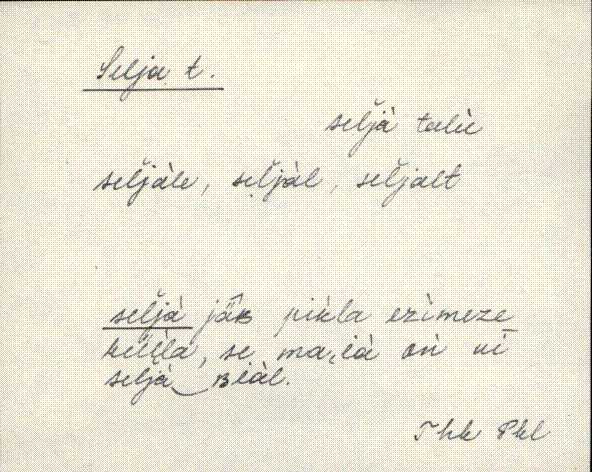 Selja t.
sel̆jà talù
sel̆jàle, sel̆jàl, sel̆jalt
sel̆jà jä̂ʙ pikla ezìmeze
külla, se ma,ià on
sel̆jà ʙiàl.
Ihk Pkl